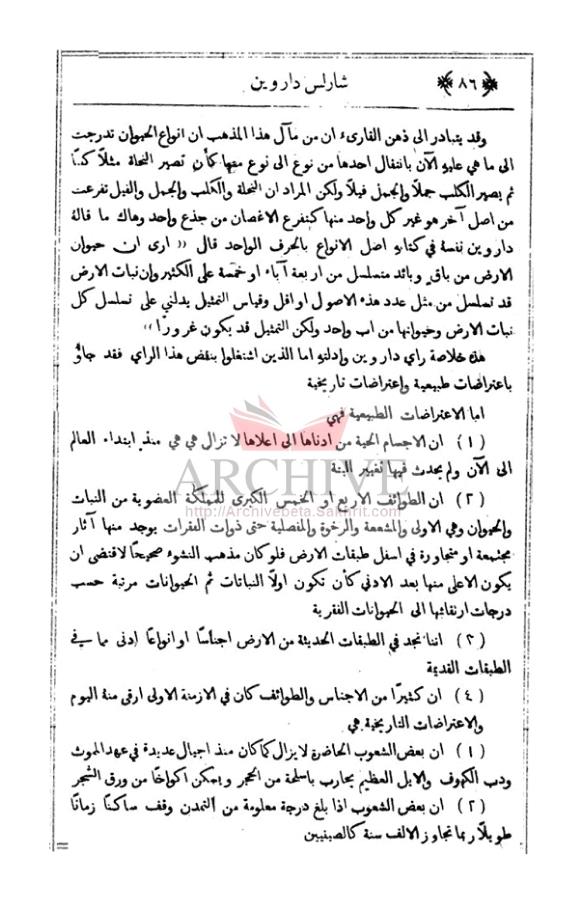 ﴿٨٦﴾ شارلس داروين
وقد يتبادر الى ذهن القارىء ان من مآل هذا المذهب ان انواع الحيوان تدرجت
الى ما هي عليه الآن بانتقال احدها من نوع الى نوع منها كأن تصير النحلة مثلاً كلبًا
ثم يصير الكلب جملاً والجمل فيلاً ولكن المراد ان النحلة والكلب والجمل والفيل تفرعت
من اصل آخر هو غير كل واحد منها كتفرع الاغصان من جذع واحد وهاك ما قالهُ
داروين نفسهُ في كتابهِ اصل الانواع بالحرف الواحد قال «ارى ان حيوان
الارض من باقٍ وبائد متسلسل من اربعة آباء او خمسة على الكثير وان نبات الارض
قد تسلسل من مثل عدد هذه الاصول او اقل وقياس التمثيل يدلني على تسلسل كل
نبات الارض وحيوانها من اب واحد ولكن التمثيل قد يكون غرورًا»
هذه خلاصة راي داروين وادلتهِ اما الذين اشتغلوا بنقض هذا الراي فقد جاؤُ
باعتراضات طبيعية واعتراضات تاريخية
اما الاعتراضات الطبيعية فهي
(١) ان الاجسام الحية من ادناها الى اعلاها لا تزال هي هي منذ ابتداء العالم
الى الآن ولم يحدث فيها تغيير البتة
ARCHIVE
http://Archivebeta.Sakhrit.com
(٢) ان الطوائف الاربع او الخمس الكبرى للمملكة العضوية من النبات
والحيوان وهي الاولى والمشععة والرخوة والمفصلية حتى ذوات الفقرات يوجد منها آثار
مجتمعة او متجاورة في اسفل طبقات الارض فلو كان مذهب النشوء صحيحًا لاقتضى ان
يكون الاعلى منها بعد الادنى كأن تكون اولاً النباتات ثم الحيوانات مرتبة حسب
درجات ارتقائها الى الحيوانات الفقرية
(٣) اننا نجد في الطبقات الحديثة من الارض اجناسًا او انواعًا ادنى مما في
الطبقات القديمة
(٤) ان كثيرًا من الاجناس والطوائف كان في الازمنة الاولى ارقى منهُ اليوم
والاعتراضات التاريخية هي
(١) ان بعض الشعوب الحاضرة لا يزال كما كان منذ اجيال عديدة في عهد الموث
ودب الكهوف والايل العظيم يحارب باسلحة من الحجر ويسكن اكواخًا من ورق الشجر
(٢) ان بعض الشعوب اذا بلغ درجة معلومة من التمدن وقف ساكنًا زمانًا
طويلاً ربما تجاوز الالف سنة كالصينيين